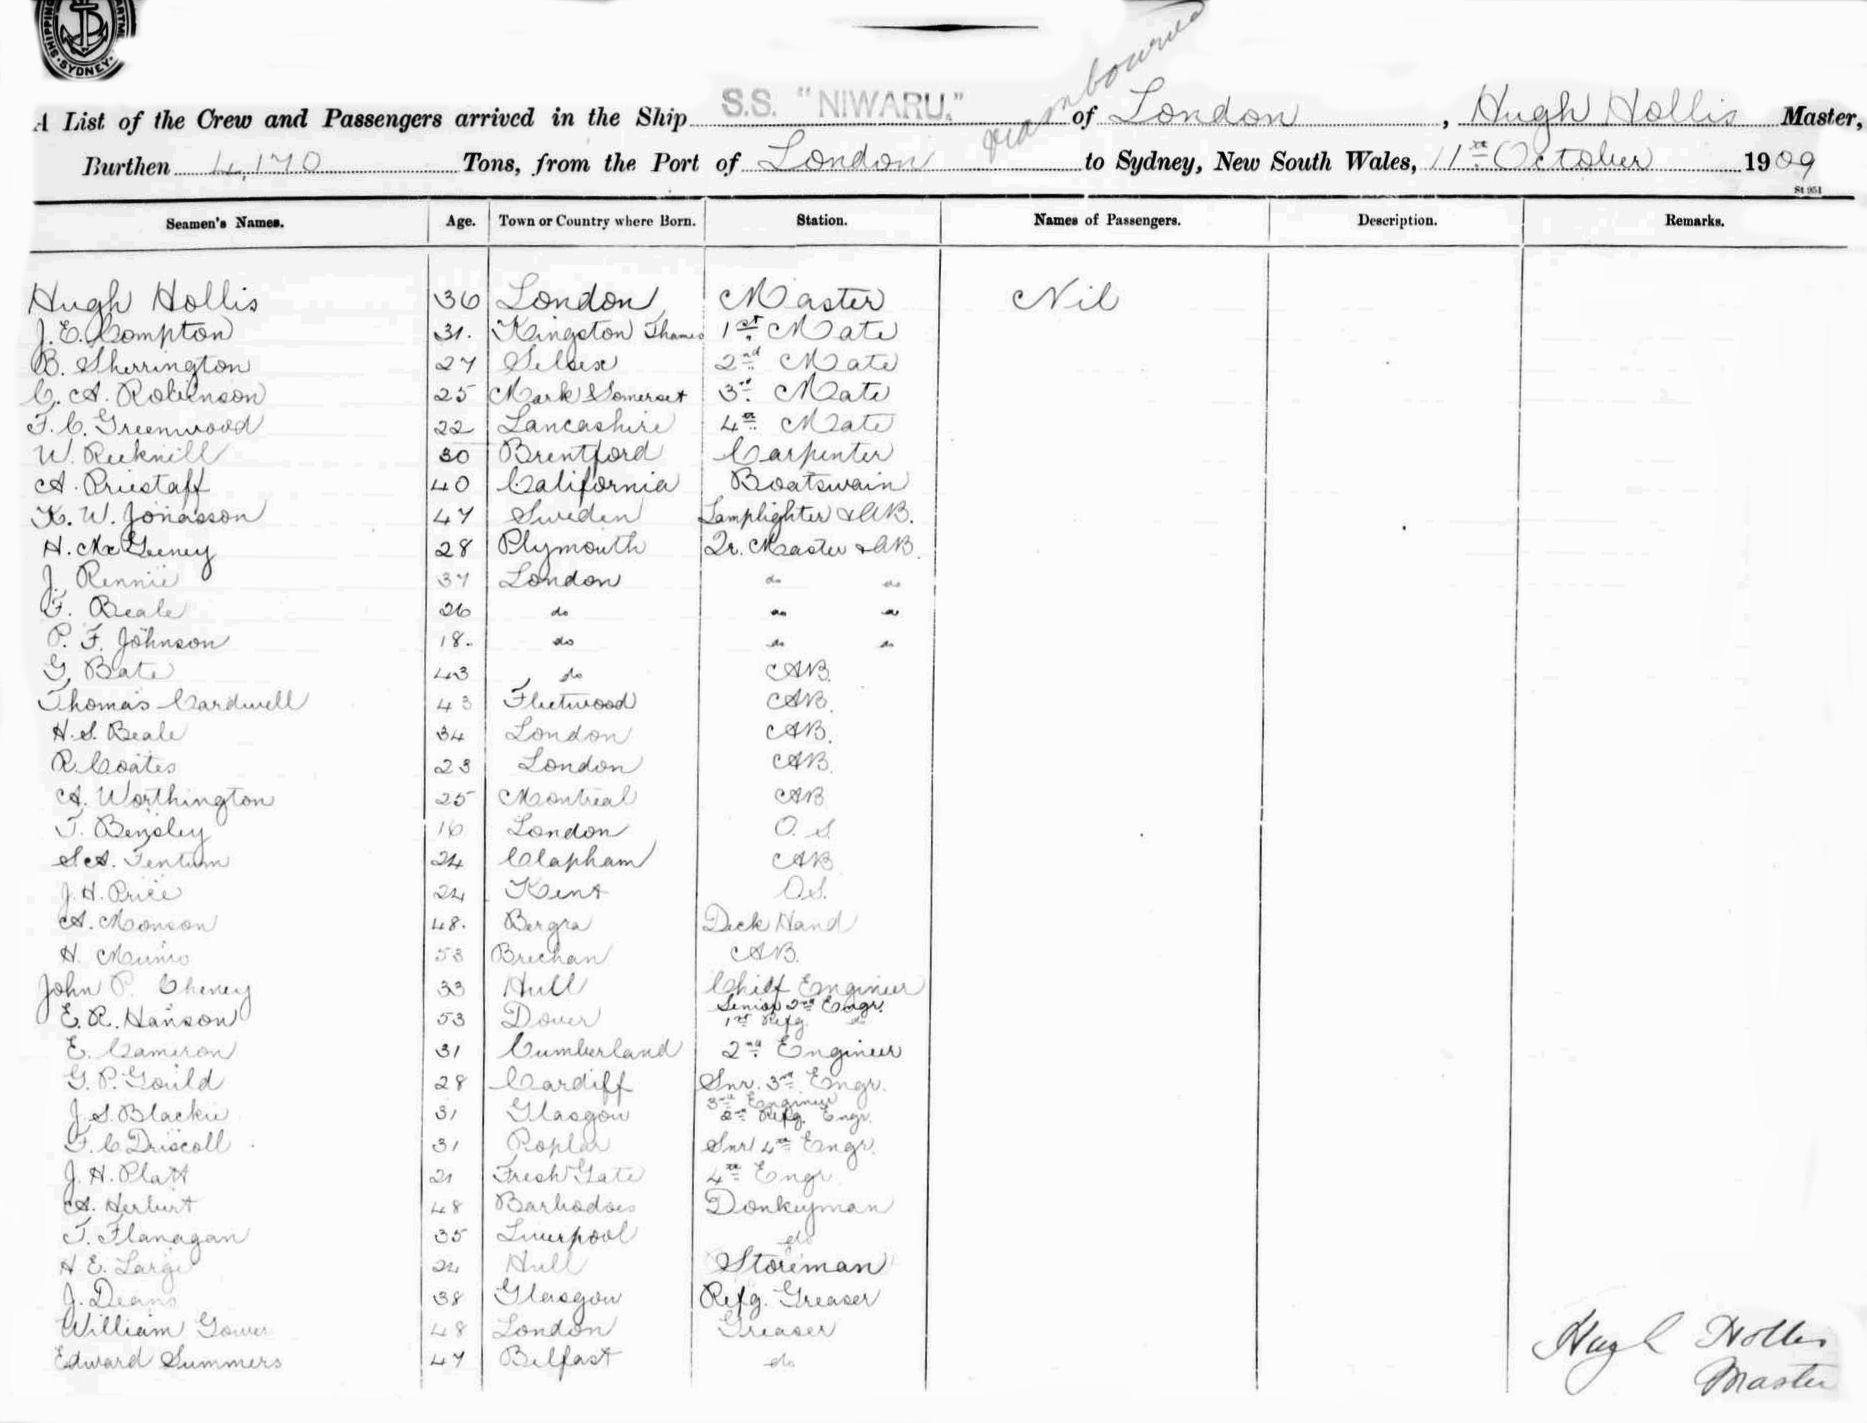 SHIPPING
SYDNEY
A List of the Crew and Passengers arrived in the Ship S.S. "NIWARU." of London, Hugh Hollis Master,
Burthen 4,170 Tons, from the Port of London to Sydney, New South Wales, 11th October 1909
St 951
Seamen's Names. Age. Town or Country where Born. Station. Names of Passengers. Description. Remarks.
Hugh Hollis 36 London Master Nil
J. E. Compton 31. Kingston Thames 1st Mate
B. Sherrington 27 2nd Mate
C. A. Robinson 25 Mark Somerset 3rd Mate
F. C. Greenwood 22 Lancashire 4th Mate
W. Recknell 30 Brentford Carpenter
A. Priestaff 40 California Boatswain
K. W. Jonasson 47 Sweden Lamplighter & AB.
H. McGeeney 28 Plymouth Qr. Master & AB.
J. Rennie 37 London do do
F. Beale 26 do do do
P. F. Johnson 18. do do do
G. Bate 43 do AB.
Thomas Cardwell 43 Fleetwood AB.
H. S. Beale 34 London AB.
R. Coates 23 London AB.
A. Worthington 25 Montreal AB
T. Bensley 16 London O. S.
S. A. Fentum 24 Clapham AB
J. H. Price 24 Kent O.S.
A. Monson 48. Deck Hand
H. Munro 53 Brechan AB.
John P. Cheney 33 Hull Chief Engineer
E. R. Hanson 53 Dover Senior 2nd Engr.
1st Refg. do
E. Cameron 31 Cumberland 2nd Engineer
G. P. Gould 28 Cardiff Snr. 3rd Engr.
J. S. Blackie 31 Glasgow 3rd Engineer
2nd Refg. Engr.
F. C. Driscoll 31 Poplar Snr 4th Engr.
J. H. Platt 21 4th Engr
A. Herbert 48 Barbadoes Donkeyman
T. Flanagan 35 Liverpool do
H E. Large 24 Hull Storeman
J. Deans 38 Glasgow Refg. Greaser
William Gower 48 London Greaser
Edward Summers 47 Belfast do
Hugh Hollis
Master